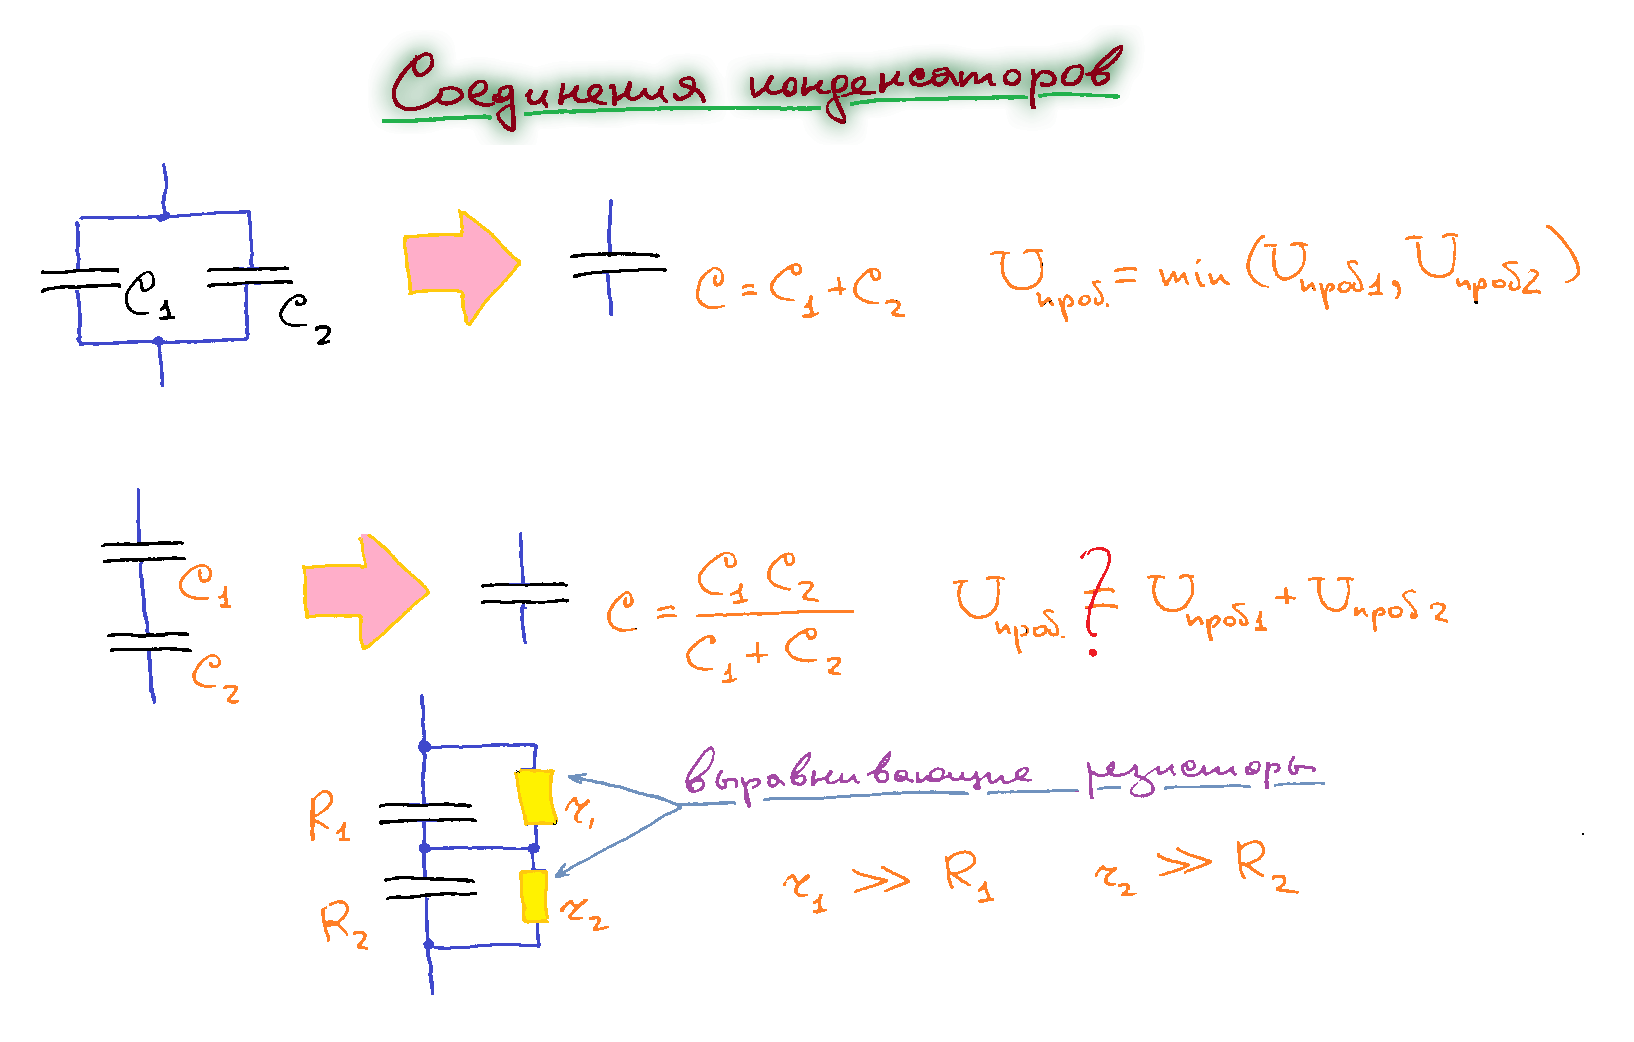 Соединения конденсаторов
C₁
C₂
C = C₁ + C₂
Uпроб. = min (Uпроб1, Uпроб2)
C₁
C₂
C = C₁ C₂ / C₁ + C₂
Uпроб. =? Uпроб1 + Uпроб2
выравнивающие резисторы
R₁
r₁
R₂
r₂
r₁ ≫ R₁
r₂ ≫ R₂